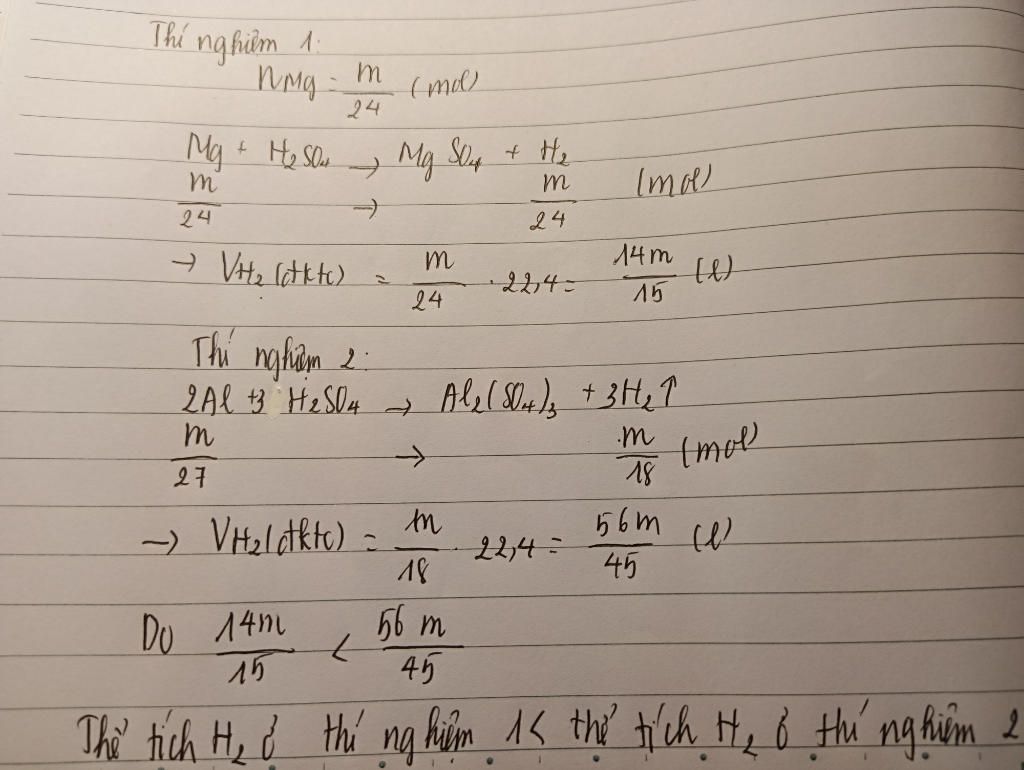 Thí nghiệm 1:
nMg = m/24 (mol)
Mg + H2SO4 → MgSO4 + H2
m/24 → m/24 (mol)
→ VH2 (đktc) = m/24 . 22,4 = 14m/15 (l)
Thí nghiệm 2:
2Al + 3 H2SO4 → Al2(SO4)3 + 3H2↑
m/27 → m/18 (mol)
→ VH2(đktc) = m/18 . 22,4 = 56m/45 (l)
Do 14m/15 < 56m/45
Thể tích H2 ở thí nghiệm 1 < thể tích H2 ở thí nghiệm 2